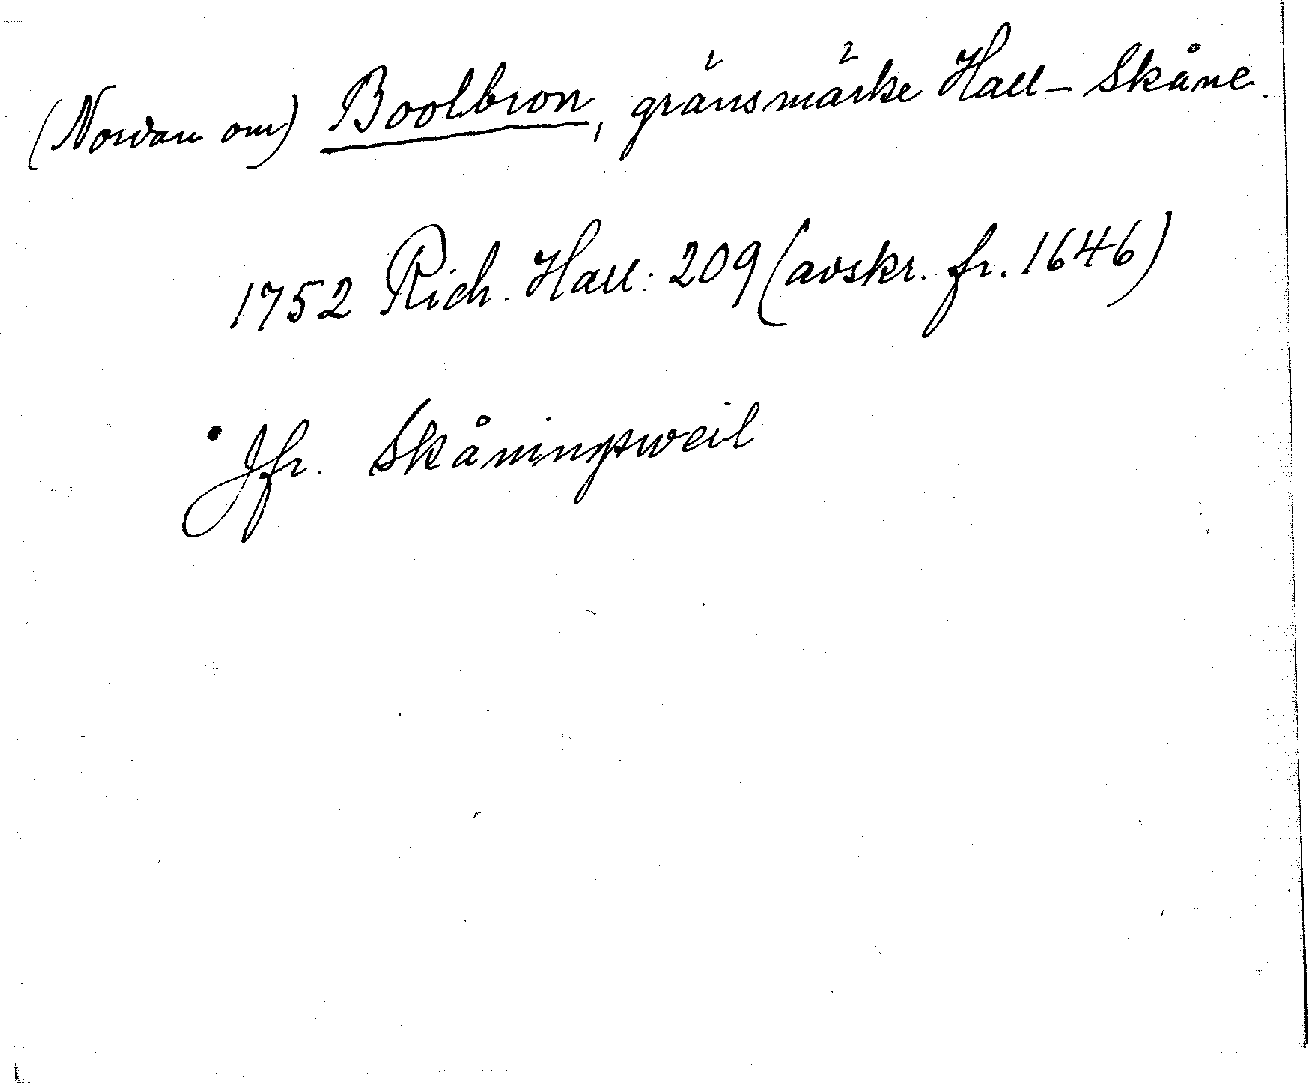 (Nordan om) Boolbron, gränsmärke Hall - Skåne.
1752 Rich. Hall: 209 (avskr. fr. 1646)
Jfr. Skåningsweil